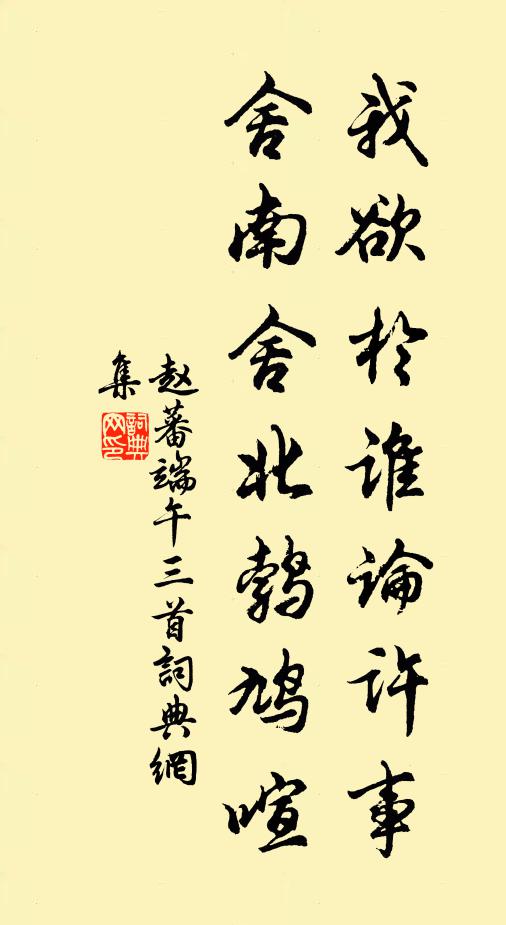 我欲於誰論許事
舍南舍北鹁鳩喧
赵蕃端午三首詞典網
集
詞典
网印